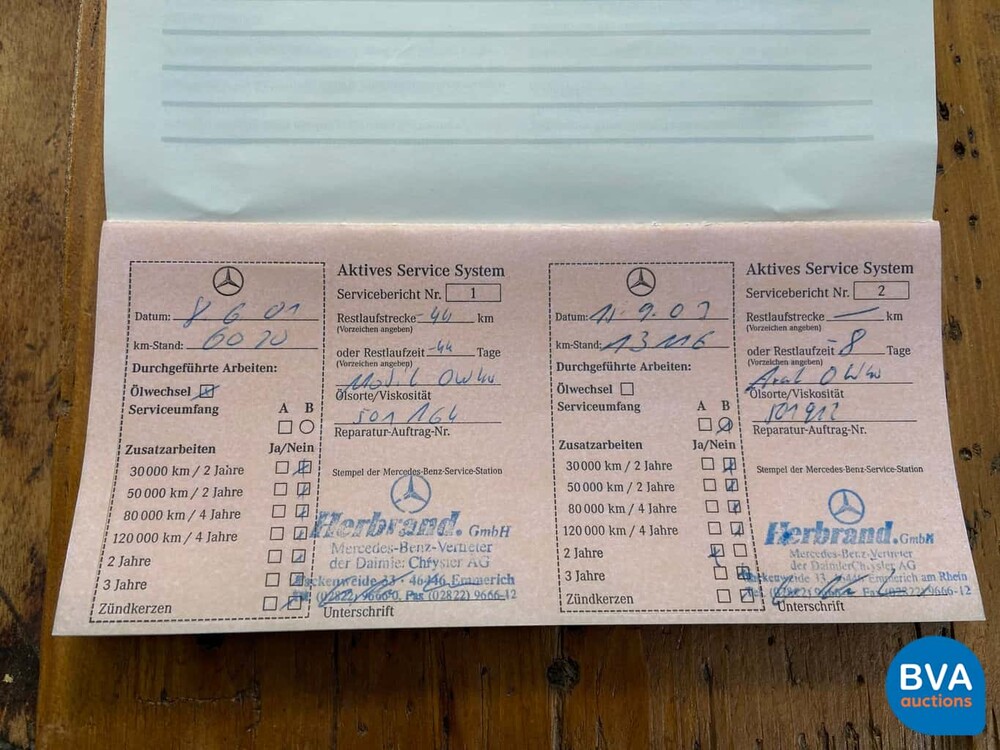 Aktives Service System
Servicebericht Nr. 1
Datum: 8. 6. 01
Restlaufstrecke -44 km
(Vorzeichen angeben)
km-Stand: 6020
oder Restlaufzeit -44 Tage
(Vorzeichen angeben)
Durchgeführte Arbeiten:
Mobil 0W40
Ölwechsel
Ölsorte/Viskosität
Serviceumfang A B
501 164
Reparatur-Auftrag-Nr.
Zusatzarbeiten Ja/Nein
30 000 km / 2 Jahre
50 000 km / 2 Jahre
80 000 km / 4 Jahre
120 000 km / 4 Jahre
2 Jahre
3 Jahre
Zündkerzen
Stempel der Mercedes-Benz-Service-Station
Herbrand. GmbH
Mercedes-Benz-Vertreter
der DaimlerChrysler AG
33 · 46446 Emmerich
(02822) 9666-0, Fax (02822) 9666-12
Unterschrift
Aktives Service System
Servicebericht Nr. 2
Datum: 11. 9. 03
Restlaufstrecke — km
(Vorzeichen angeben)
km-Stand: 13116
oder Restlaufzeit -8 Tage
(Vorzeichen angeben)
Durchgeführte Arbeiten:
Aral 0W40
Ölwechsel
Ölsorte/Viskosität
Serviceumfang A B
501912
Reparatur-Auftrag-Nr.
Zusatzarbeiten Ja/Nein
30 000 km / 2 Jahre
50 000 km / 2 Jahre
80 000 km / 4 Jahre
120 000 km / 4 Jahre
2 Jahre
3 Jahre
Zündkerzen
Stempel der Mercedes-Benz-Service-Station
Herbrand. GmbH
Mercedes-Benz-Vertreter
der DaimlerChrysler AG
33, 46446 Emmerich am Rhein
Tel. (02822) Fax (02822) 9666-12
Unterschrift
BVA
auctions